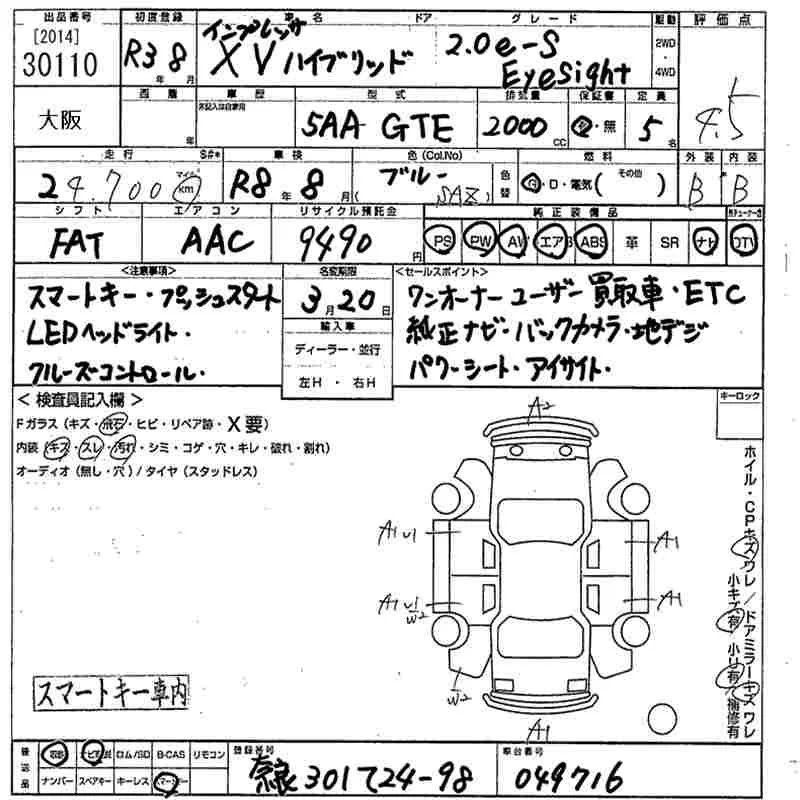 出品番号 初度登録 車名 ドア グレード 駆動 評価点
[2014]
30110
R3年 8月
インプレッサ
XVハイブリッド
2.0e-S
EyeSight
2WD・4WD
4.5
西暦 車歴 型式 排気量 保証書 定員
大阪
年
非記入は自家用
5AA GTE
2000 CC
有・無
5名
走行 S#* 車検 色(Col.No) 燃料 外装 内装
24,700 マイル km
R8年 8月
ブルー
(SAZ)
色替
G・D・電気( その他 )
B B
シフト エアコン リサイクル預託金 純正装備品
FAT
AAC
9490円
PS PW AW エアB ABS 革 SR ナビ DTV
<注意事項> 名変期限 <セールスポイント>
スマートキー・プッシュスタート
LEDヘッドライト・
クルーズコントロール・
3月20日
輸入車
ディーラー・並行
左H・右H
ワンオーナーユーザー買取車・ETC
純正ナビ・バックカメラ・地デジ
パワーシート・アイサイト・
<検査員記入欄> キーロック
Fガラス(キズ・飛石・ヒビ・リペア跡・X要)
内装(キズ・スレ・汚れ・シミ・コゲ・穴・キレ・破れ・割れ)
オーディオ(無し・穴)/タイヤ(スタッドレス)
A2
A1 U1
A1
A1 U1
W2
A1
W2
A1
ホイル・CPキズワレ/ドアミラーキズワレ
小キズ有 小凹有/補修有
スマートキー車内
後送品
取説 ナビ取説 ロム/SD B-CAS リモコン
ナンバー スペアキー キーレス スマートキー
登録番号 車台番号
奈良301て24-98
049716